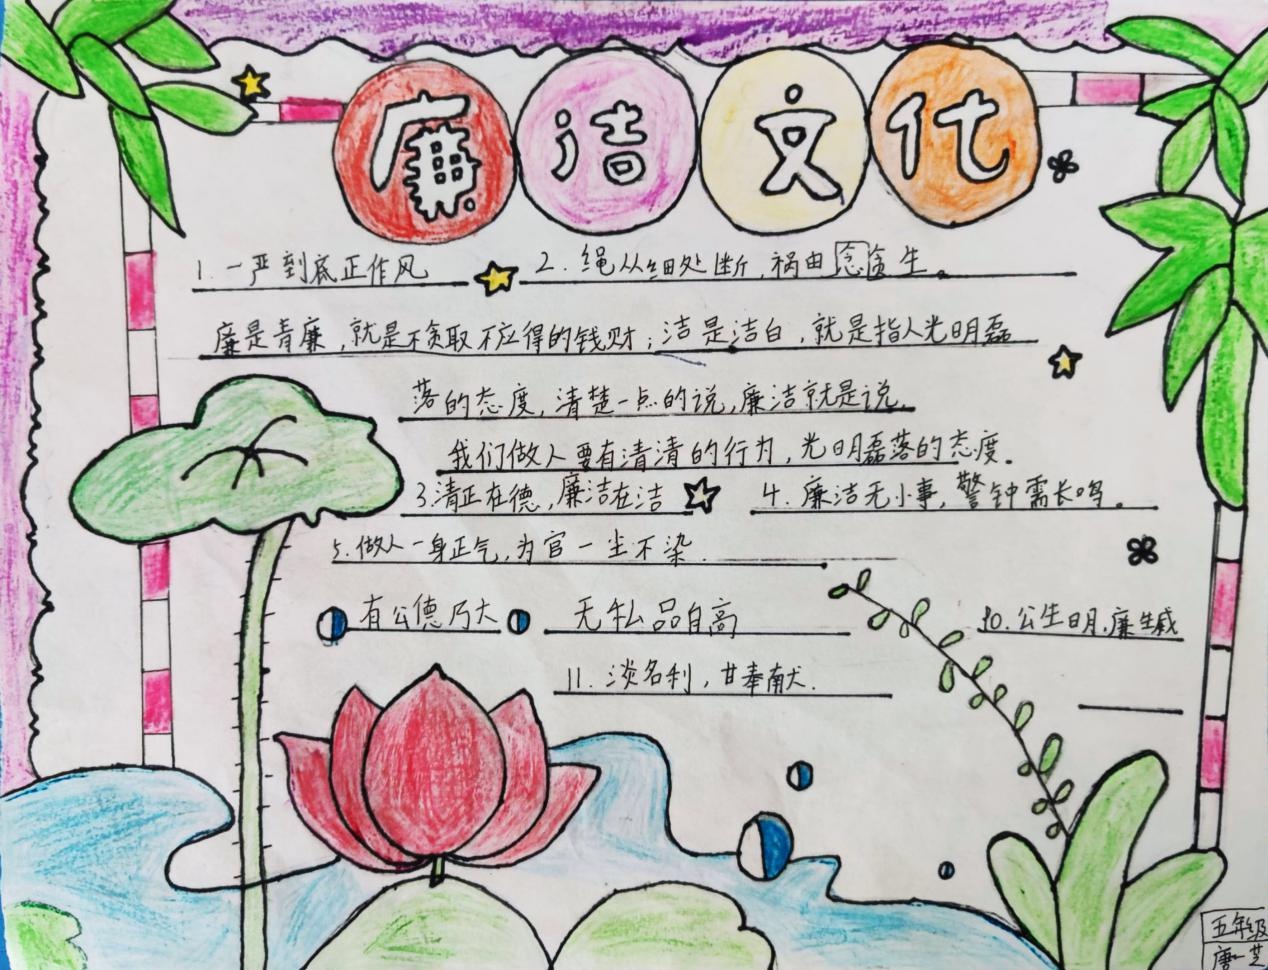 廉洁文化
1. 一严到底正作风
2. 绳从细处断，祸由念贪生。
廉是青廉，就是不贪取不应得的钱财；洁是洁白，就是指人光明磊
落的态度，清楚一点的说，廉洁就是说，
我们做人要有清清的行为，光明磊落的态度。
3.清正在德，廉洁在洁
4. 廉洁无小事，警钟需长鸣。
5.做人一身正气，为官一尘不染.
有公德乃大
无私品自高
10. 公生明.廉生威
11. 淡名利，甘奉献.
五年级
唐一芝